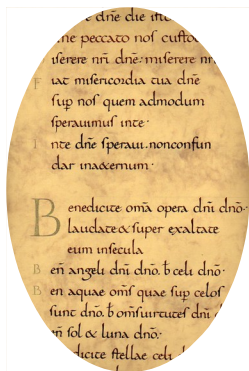 e dñe die ist
ne peccato nos custo
iserere nr̄i dñe· miserere nr̄i
F iat misericordia tua dñe
sup nos quem admodum
speravimus inte·
I nte dñe speravi. non confun
dar inaeternum·
B enedicite om̄a opera dn̄i dn̄o·
laudate & super exaltate
eum insecula
B eñ angeli dn̄i dn̄o. ƀ celi dn̄o·
B en aquae om̄s quae sup celos
sunt dn̄o. ƀ om̄s virtutes dn̄i
eñ sol & luna dn̄o·
dicite stellae celi